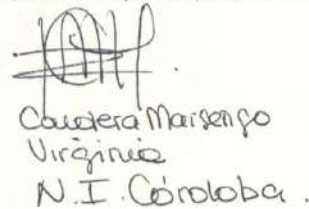 Caudera Marsengo
Virginia
N.I. Córdoba.